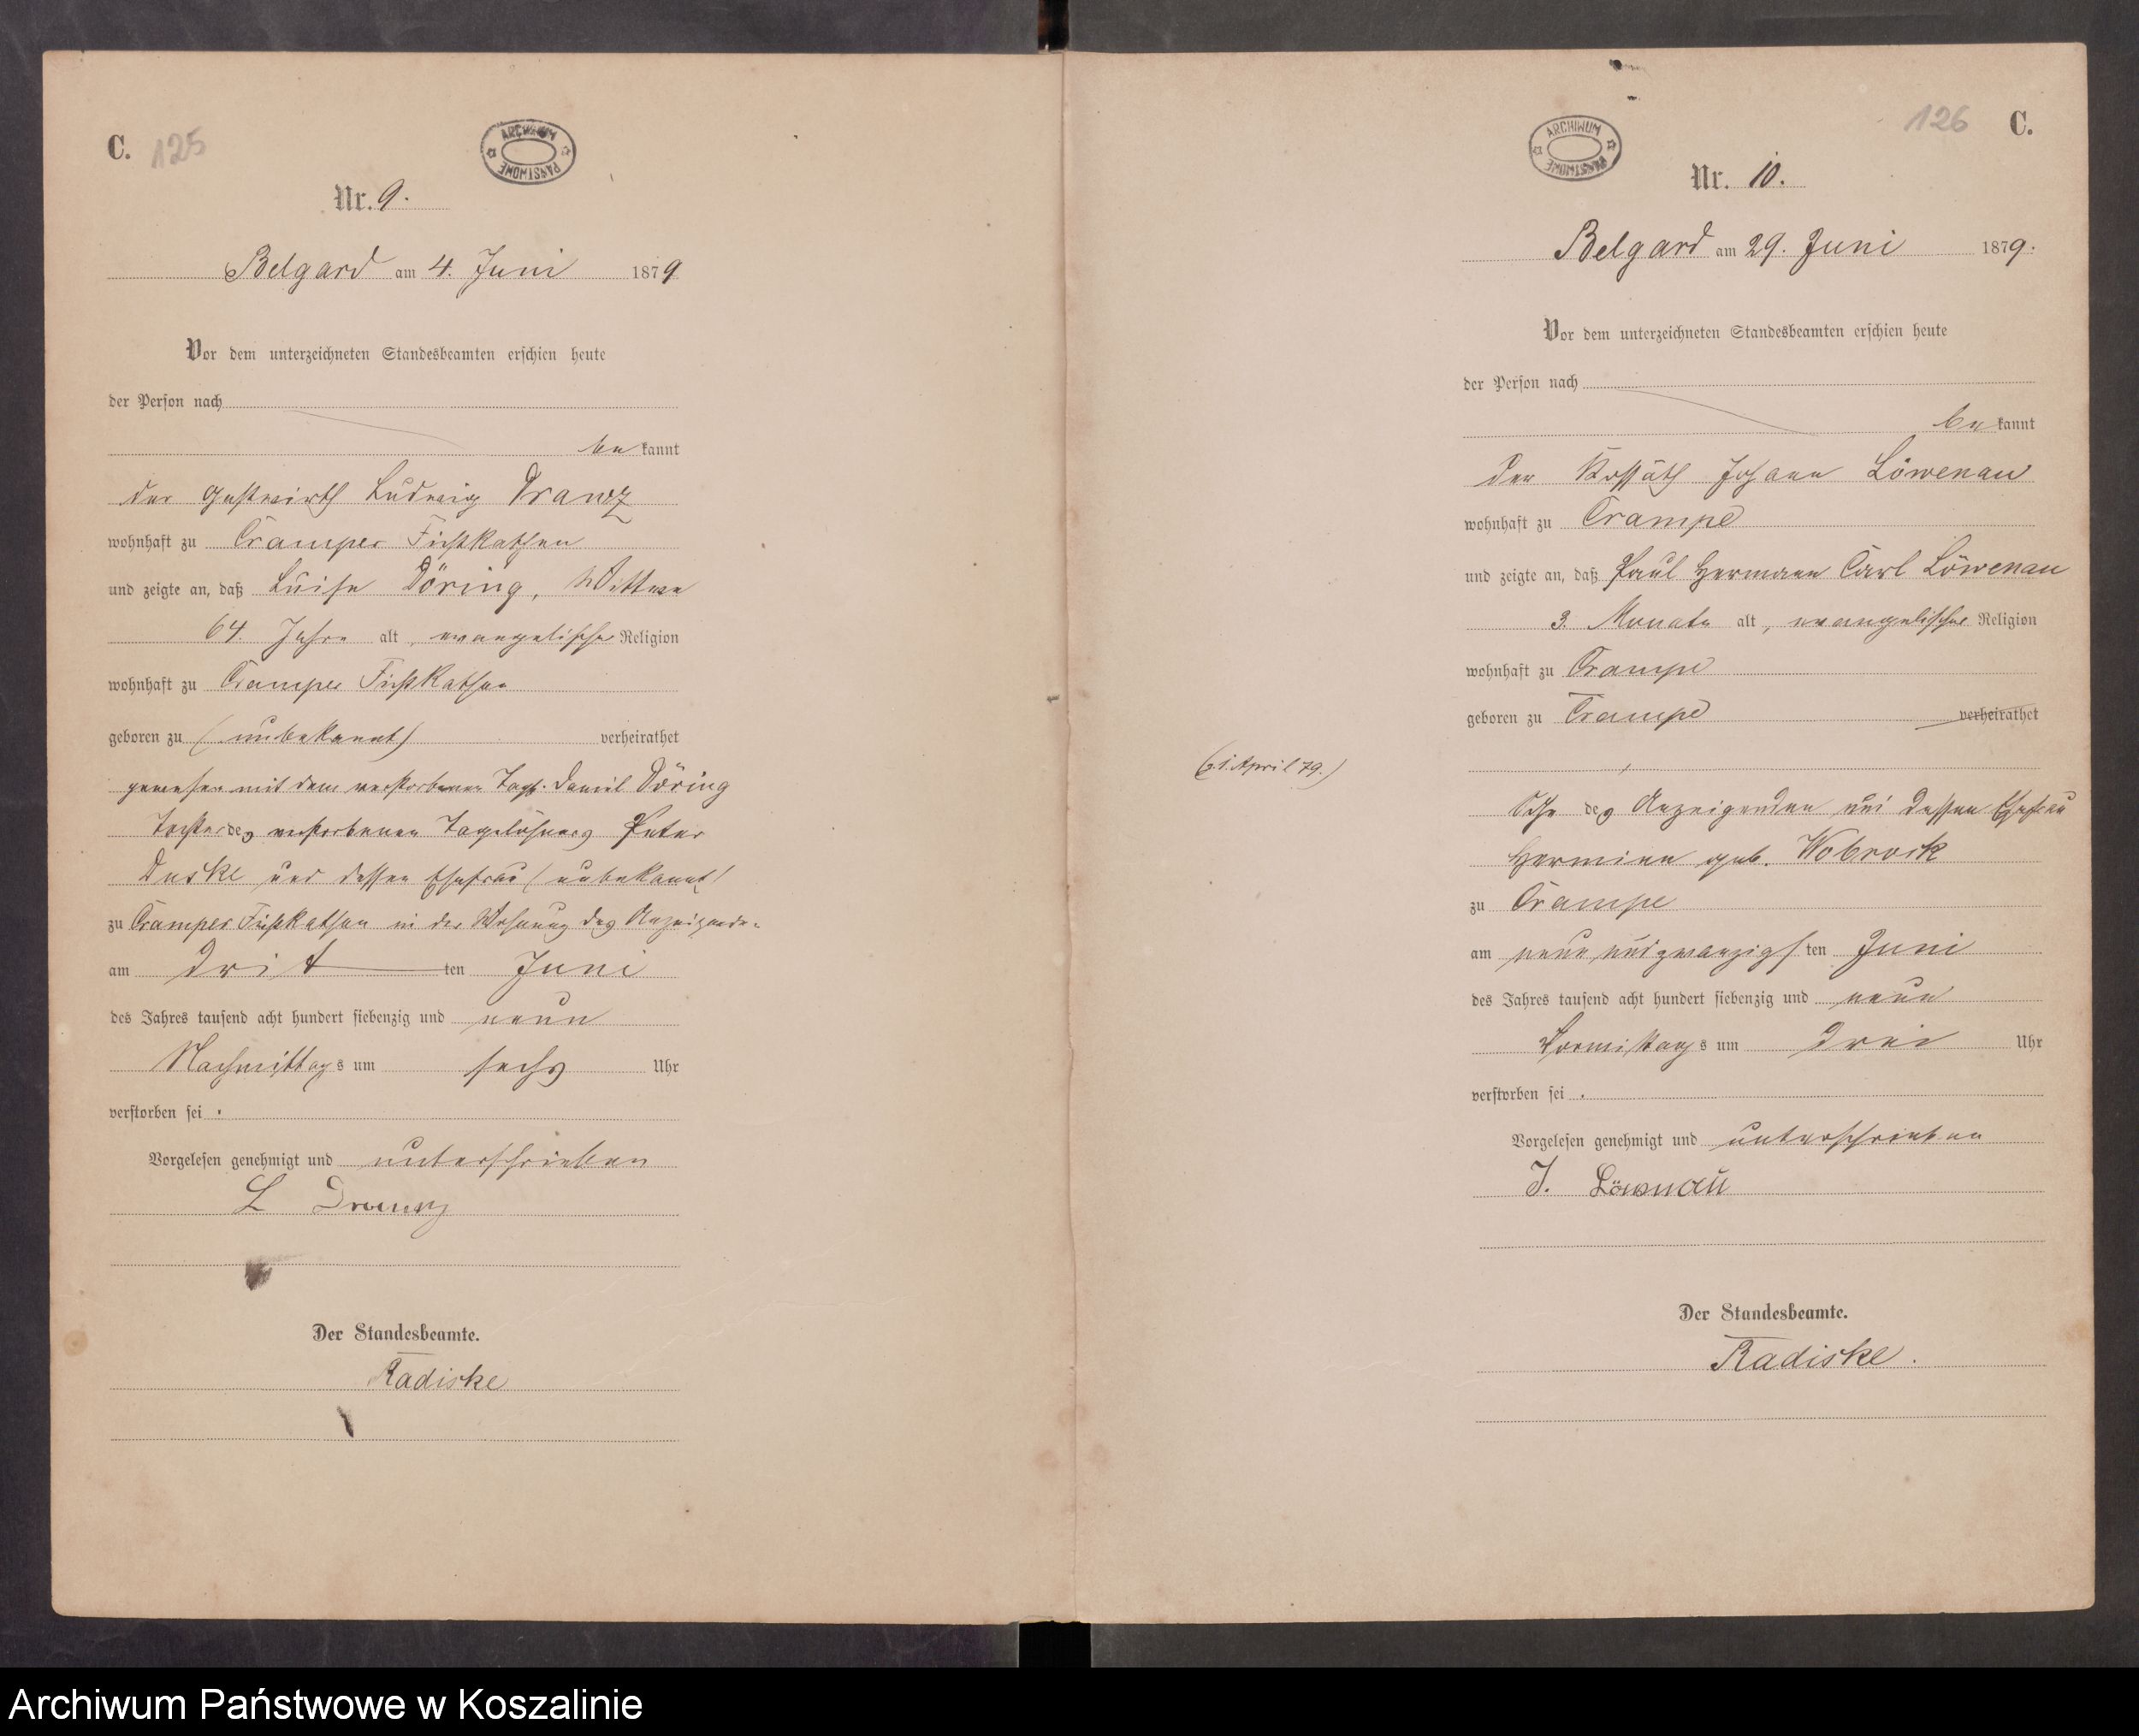 C. 125
ARCHIWUM PAŃSTWOWE
Nr. 9.
Belgard am 4. Juni 1879
Vor dem unterzeichneten Standesbeamten erschien heute
der Person nach
be kannt
der Gastwirth Ludwig Drawz
wohnhaft zu Cramper Fischkathen
und zeigte an, daß Luise Döring, Wittwe
64. Jahre alt, evangelischer Religion
wohnhaft zu Cramper Fischkathen
geboren zu (unbekannt) verheirathet
gewesen mit dem verstorbenen Tagl. Daniel Döring
Tochter des verstorbenen Tagelöhners Peter
Duske und dessen Ehefrau (unbekannt)
zu Cramper Fischkathen in der Wohnung des Anzeigenden
am drit ten Juni
des Jahres tausend acht hundert siebenzig und neun
Nachmittags um sechs Uhr
verstorben sei.
Vorgelesen genehmigt und unterschrieben
L Drawz
Der Standesbeamte.
Radiske
126 C.
ARCHIWUM PAŃSTWOWE
Nr. 10.
Belgard am 29. Juni 1879.
Vor dem unterzeichneten Standesbeamten erschien heute
der Person nach
be kannt
der Kossäth Johann Löwenau
wohnhaft zu Crampe
und zeigte an, daß Paul Hermann Carl Löwenau
3. Monate alt, evangelischer Religion
wohnhaft zu Crampe
geboren zu Crampe verheirathet
April 79.)
Sohn des Anzeigenden und dessen Ehefrau
Hermine geb. Wobrock
zu Crampe
am neun und zwanzigs ten Juni
des Jahres tausend acht hundert siebenzig und neun
Vormittags um drei Uhr
verstorben sei.
Vorgelesen genehmigt und unterschrieben
J. Löwnau
Der Standesbeamte.
Radiske.
Archiwum Państwowe w Koszalinie